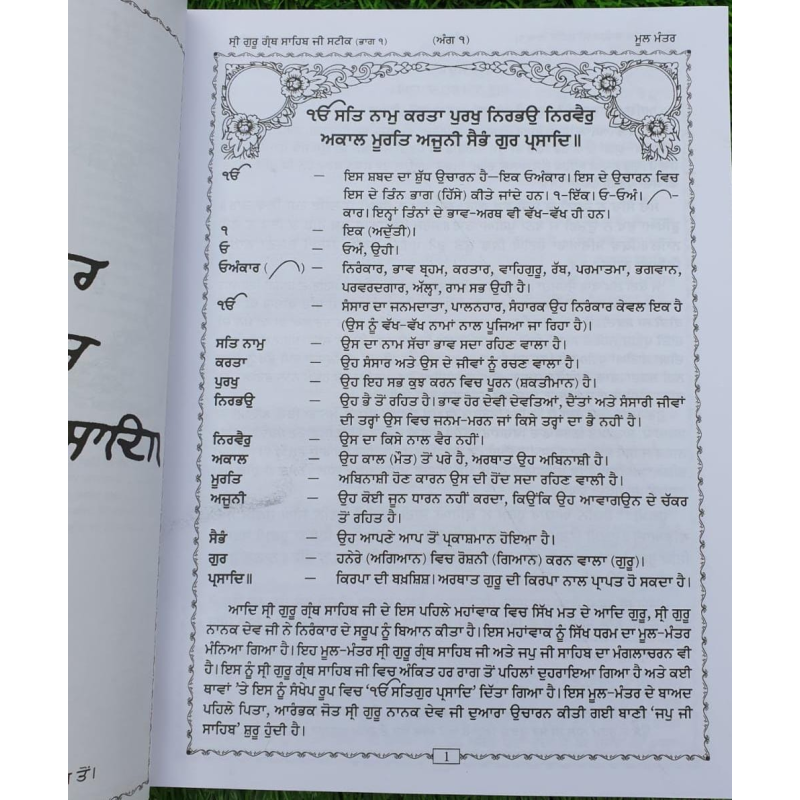 ਸ੍ਰੀ ਗੁਰੂ ਗ੍ਰੰਥ ਸਾਹਿਬ ਜੀ ਸਟੀਕ (ਭਾਗ ੧) (ਅੰਗ ੧) ਮੂਲ ਮੰਤਰ
ੴ ਸਤਿ ਨਾਮੁ ਕਰਤਾ ਪੁਰਖੁ ਨਿਰਭਉ ਨਿਰਵੈਰੁ
ਅਕਾਲ ਮੂਰਤਿ ਅਜੂਨੀ ਸੈਭੰ ਗੁਰ ਪ੍ਰਸਾਦਿ॥
ੴ — ਇਸ ਸ਼ਬਦ ਦਾ ਸ਼ੁੱਧ ਉਚਾਰਨ ਹੈ—ਇਕ ਓਅੰਕਾਰ। ਇਸ ਦੇ ਉਚਾਰਨ ਵਿਚ
ਇਸ ਦੇ ਤਿੰਨ ਭਾਗ (ਹਿੱਸੇ) ਕੀਤੇ ਜਾਂਦੇ ਹਨ। ੧-ਇੱਕ। ਓ-ਓਅੰ। -
ਕਾਰ। ਇਨ੍ਹਾਂ ਤਿੰਨਾਂ ਦੇ ਭਾਵ-ਅਰਥ ਵੀ ਵੱਖ-ਵੱਖ ਹੀ ਹਨ।
੧ — ਇਕ (ਅਦੁੱਤੀ)।
ਓ — ਓਅੰ, ਉਹੀ।
ਓਅੰਕਾਰ ( ) — ਨਿਰੰਕਾਰ, ਭਾਵ ਬ੍ਰਹਮ, ਕਰਤਾਰ, ਵਾਹਿਗੁਰੂ, ਰੱਬ, ਪਰਮਾਤਮਾ, ਭਗਵਾਨ,
ਪਰਵਰਦਗਾਰ, ਅੱਲ੍ਹਾ, ਰਾਮ ਸਭ ਉਹੀ ਹੈ।
ੴ — ਸੰਸਾਰ ਦਾ ਜਨਮਦਾਤਾ, ਪਾਲਨਹਾਰ, ਸੰਹਾਰਕ ਉਹ ਨਿਰੰਕਾਰ ਕੇਵਲ ਇਕ ਹੈ
(ਉਸ ਨੂੰ ਵੱਖ-ਵੱਖ ਨਾਮਾਂ ਨਾਲ ਪੂਜਿਆ ਜਾ ਰਿਹਾ ਹੈ)।
ਸਤਿ ਨਾਮੁ — ਉਸ ਦਾ ਨਾਮ ਸੱਚਾ ਭਾਵ ਸਦਾ ਰਹਿਣ ਵਾਲਾ ਹੈ।
ਕਰਤਾ — ਉਹ ਸੰਸਾਰ ਅਤੇ ਉਸ ਦੇ ਜੀਵਾਂ ਨੂੰ ਰਚਣ ਵਾਲਾ ਹੈ।
ਪੁਰਖੁ — ਉਹ ਇਹ ਸਭ ਕੁਝ ਕਰਨ ਵਿਚ ਪੂਰਨ (ਸ਼ਕਤੀਮਾਨ) ਹੈ।
ਨਿਰਭਉ — ਉਹ ਭੈ ਤੋਂ ਰਹਿਤ ਹੈ। ਭਾਵ ਹੋਰ ਦੇਵੀ ਦੇਵਤਿਆਂ, ਦੈਂਤਾਂ ਅਤੇ ਸੰਸਾਰੀ ਜੀਵਾਂ
ਦੀ ਤਰ੍ਹਾਂ ਉਸ ਵਿਚ ਜਨਮ-ਮਰਨ ਜਾਂ ਕਿਸੇ ਤਰ੍ਹਾਂ ਦਾ ਭੈ ਨਹੀਂ ਹੈ।
ਨਿਰਵੈਰੁ — ਉਸ ਦਾ ਕਿਸੇ ਨਾਲ ਵੈਰ ਨਹੀਂ।
ਅਕਾਲ — ਉਹ ਕਾਲ (ਮੌਤ) ਤੋਂ ਪਰੇ ਹੈ, ਅਰਥਾਤ ਉਹ ਅਬਿਨਾਸ਼ੀ ਹੈ।
ਮੂਰਤਿ — ਅਬਿਨਾਸ਼ੀ ਹੋਣ ਕਾਰਣ ਉਸ ਦੀ ਹੋਂਦ ਸਦਾ ਰਹਿਣ ਵਾਲੀ ਹੈ।
ਅਜੂਨੀ — ਉਹ ਕੋਈ ਜੂਨ ਧਾਰਨ ਨਹੀਂ ਕਰਦਾ, ਕਿਉਂਕਿ ਉਹ ਆਵਾਗਉਨ ਦੇ ਚੱਕਰ
ਤੋਂ ਰਹਿਤ ਹੈ।
ਸੈਭੰ — ਉਹ ਆਪਣੇ ਆਪ ਤੋਂ ਪ੍ਰਕਾਸ਼ਮਾਨ ਹੋਇਆ ਹੈ।
ਗੁਰ — ਹਨੇਰੇ (ਅਗਿਆਨ) ਵਿਚ ਰੋਸ਼ਨੀ (ਗਿਆਨ) ਕਰਨ ਵਾਲਾ (ਗੁਰੂ)।
ਪ੍ਰਸਾਦਿ॥ — ਕਿਰਪਾ ਦੀ ਬਖ਼ਸ਼ਿਸ਼। ਅਰਥਾਤ ਗੁਰੂ ਦੀ ਕਿਰਪਾ ਨਾਲ ਪ੍ਰਾਪਤ ਹੋ ਸਕਦਾ ਹੈ।
ਆਦਿ ਸ੍ਰੀ ਗੁਰੂ ਗ੍ਰੰਥ ਸਾਹਿਬ ਜੀ ਦੇ ਇਸ ਪਹਿਲੇ ਮਹਾਂਵਾਕ ਵਿਚ ਸਿੱਖ ਮਤ ਦੇ ਆਦਿ ਗੁਰੂ, ਸ੍ਰੀ ਗੁਰੂ
ਨਾਨਕ ਦੇਵ ਜੀ ਨੇ ਨਿਰੰਕਾਰ ਦੇ ਸਰੂਪ ਨੂੰ ਬਿਆਨ ਕੀਤਾ ਹੈ। ਇਸ ਮਹਾਂਵਾਕ ਨੂੰ ਸਿੱਖ ਧਰਮ ਦਾ ਮੂਲ-ਮੰਤਰ
ਮੰਨਿਆ ਗਿਆ ਹੈ। ਇਹ ਮੂਲ-ਮੰਤਰ ਸ੍ਰੀ ਗੁਰੂ ਗ੍ਰੰਥ ਸਾਹਿਬ ਜੀ ਅਤੇ ਜਪੁ ਜੀ ਸਾਹਿਬ ਦਾ ਮੰਗਲਾਚਰਨ ਵੀ
ਹੈ। ਇਸ ਨੂੰ ਸ੍ਰੀ ਗੁਰੂ ਗ੍ਰੰਥ ਸਾਹਿਬ ਜੀ ਵਿਚ ਅੰਕਿਤ ਹਰ ਰਾਗ ਤੋਂ ਪਹਿਲਾਂ ਦੁਹਰਾਇਆ ਗਿਆ ਹੈ ਅਤੇ ਕਈ
ਥਾਵਾਂ 'ਤੇ ਇਸ ਨੂੰ ਸੰਖੇਪ ਰੂਪ ਵਿਚ 'ੴ ਸਤਿਗੁਰ ਪ੍ਰਸਾਦਿ' ਦਿੱਤਾ ਗਿਆ ਹੈ। ਇਸ ਮੂਲ-ਮੰਤਰ ਦੇ ਬਾਅਦ
ਪਹਿਲੇ ਪਿਤਾ, ਆਰੰਭਕ ਜੋਤ ਸ੍ਰੀ ਗੁਰੂ ਨਾਨਕ ਦੇਵ ਜੀ ਦੁਆਰਾ ਉਚਾਰਨ ਕੀਤੀ ਗਈ ਬਾਣੀ 'ਜਪੁ ਜੀ
ਸਾਹਿਬ' ਸ਼ੁਰੂ ਹੁੰਦੀ ਹੈ।
1
ਤੋਂ।